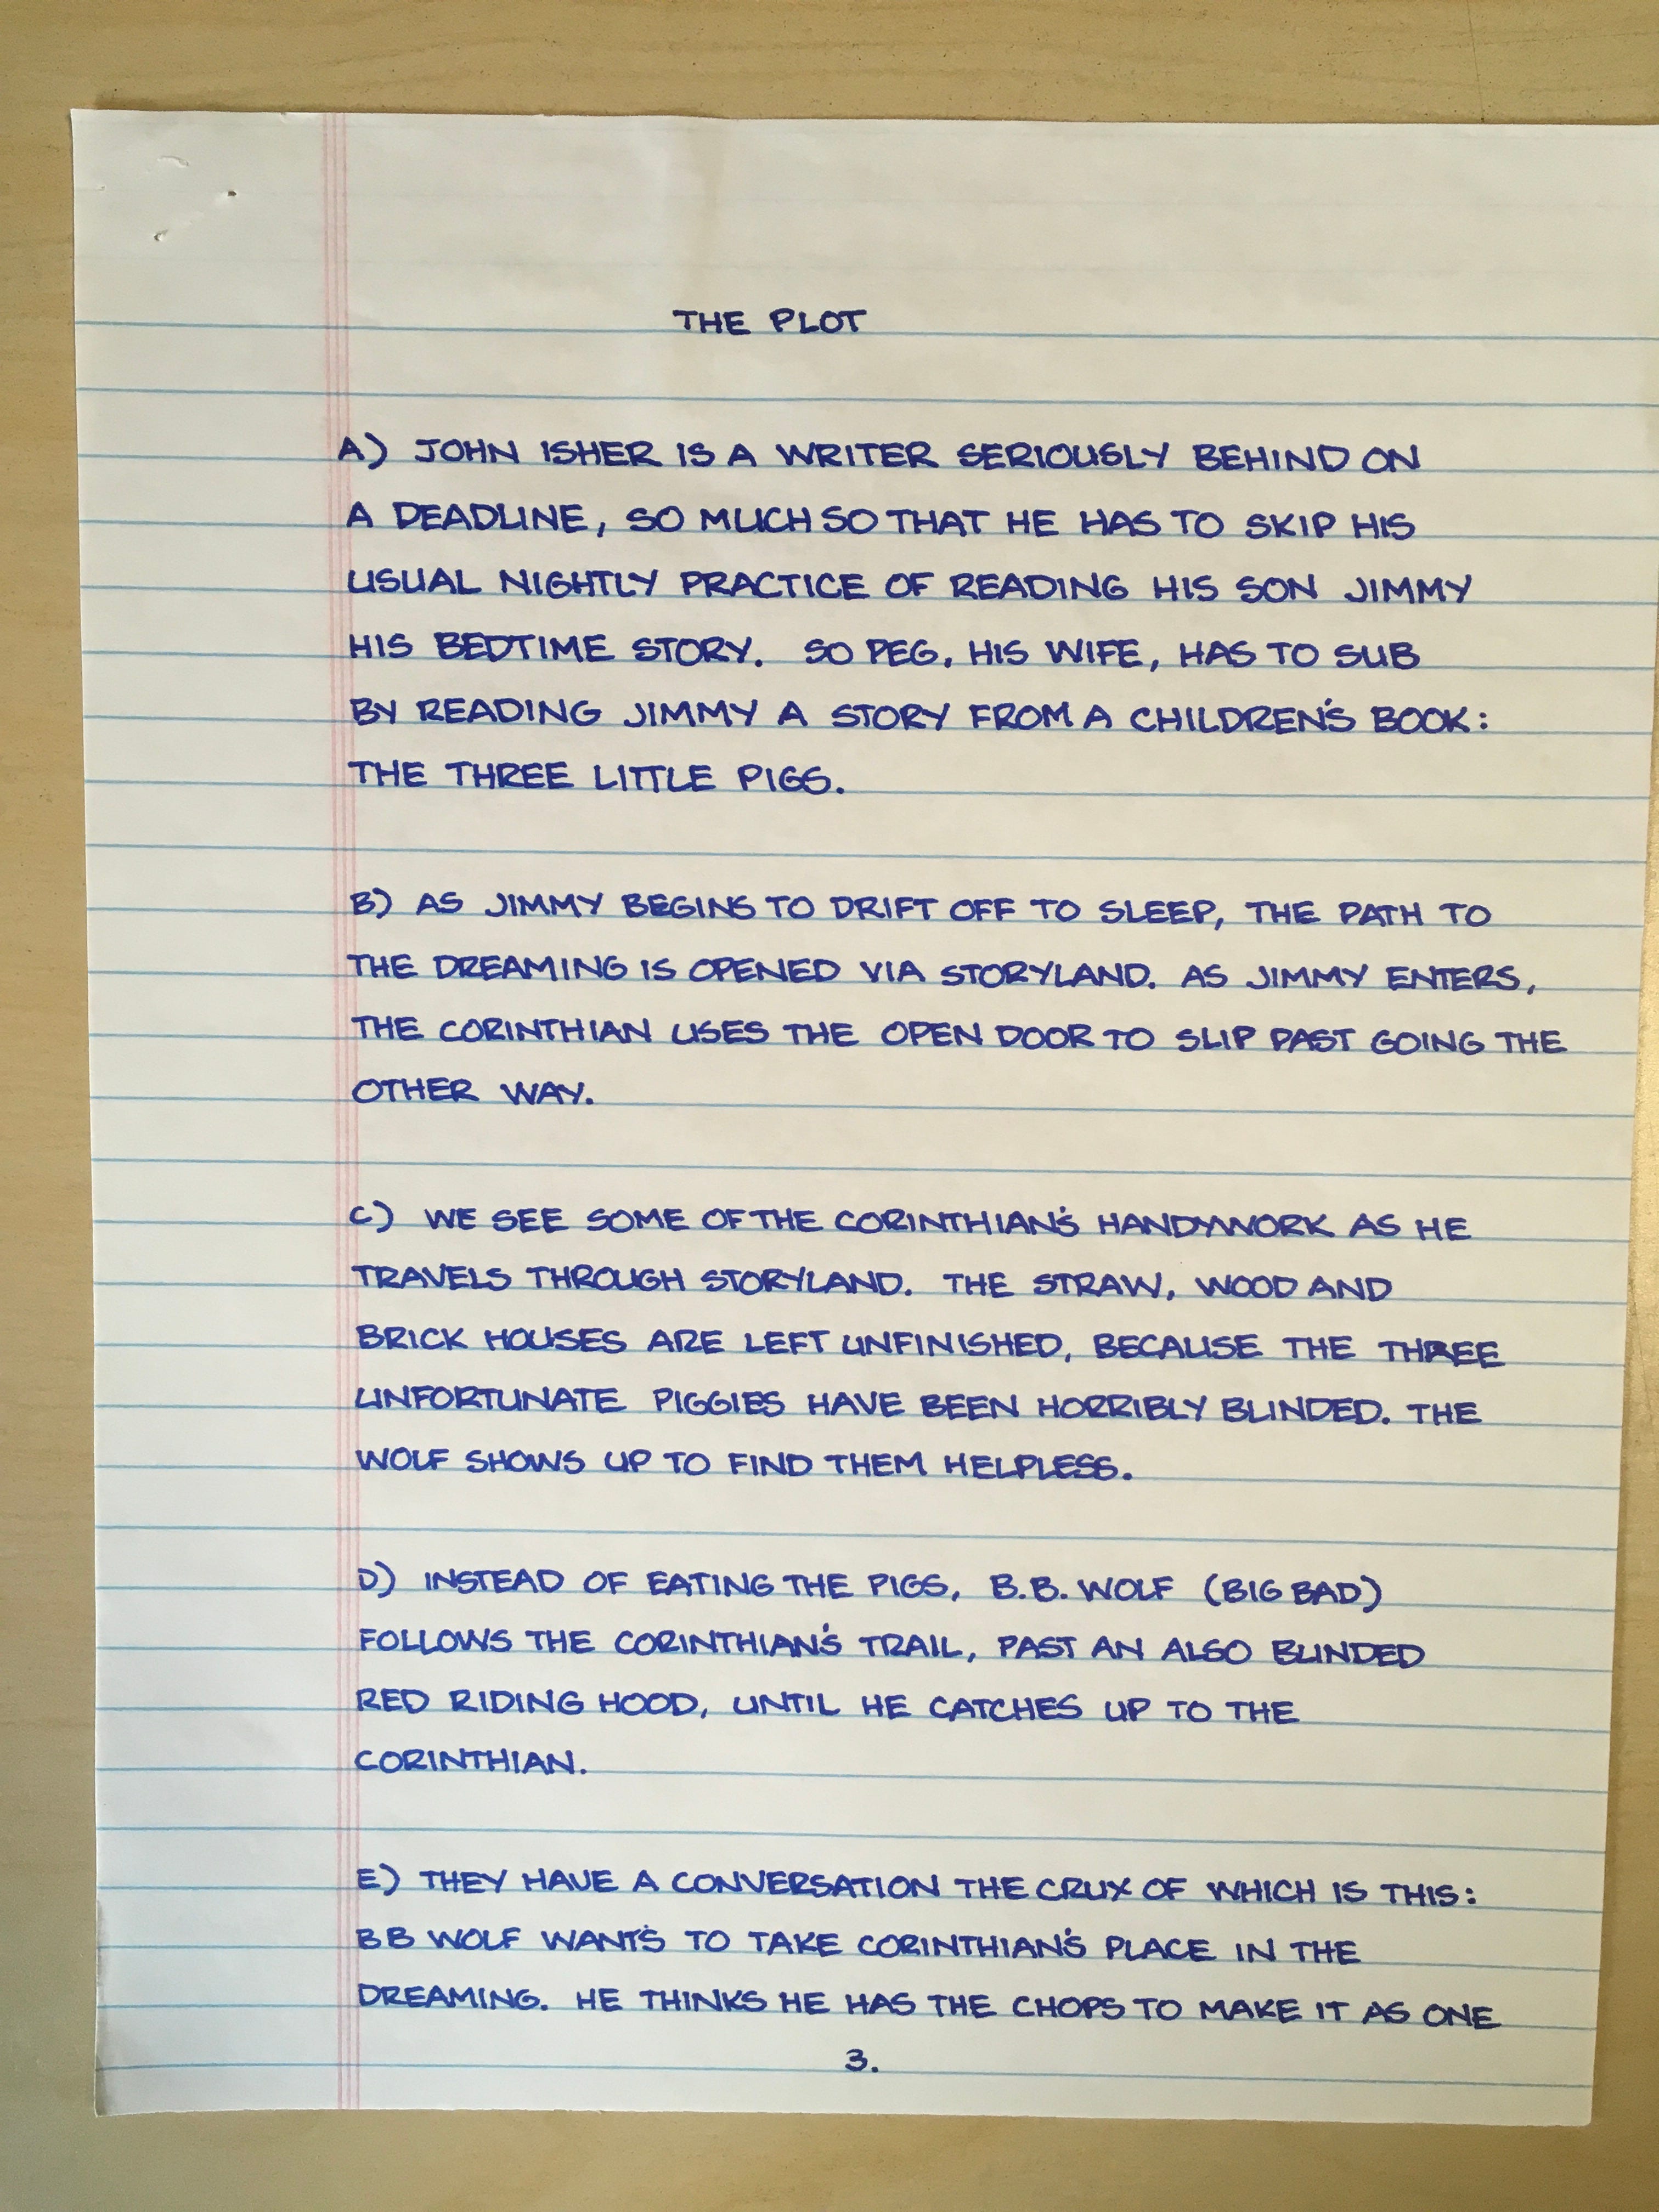 THE PLOT
A) JOHN ISHER IS A WRITER SERIOUSLY BEHIND ON
A DEADLINE, SO MUCH SO THAT HE HAS TO SKIP HIS
USUAL NIGHTLY PRACTICE OF READING HIS SON JIMMY
HIS BEDTIME STORY. SO PEG, HIS WIFE, HAS TO SUB
BY READING JIMMY A STORY FROM A CHILDREN'S BOOK:
THE THREE LITTLE PIGS.
B) AS JIMMY BEGINS TO DRIFT OFF TO SLEEP, THE PATH TO
THE DREAMING IS OPENED VIA STORYLAND. AS JIMMY ENTERS,
THE CORINTHIAN USES THE OPEN DOOR TO SLIP PAST GOING THE
OTHER WAY.
C) WE SEE SOME OF THE CORINTHIAN'S HANDYWORK AS HE
TRAVELS THROUGH STORYLAND. THE STRAW, WOOD AND
BRICK HOUSES ARE LEFT UNFINISHED, BECAUSE THE THREE
UNFORTUNATE PIGGIES HAVE BEEN HORRIBLY BLINDED. THE
WOLF SHOWS UP TO FIND THEM HELPLESS.
D) INSTEAD OF EATING THE PIGS, B.B. WOLF (BIG BAD)
FOLLOWS THE CORINTHIAN'S TRAIL, PAST AN ALSO BLINDED
RED RIDING HOOD, UNTIL HE CATCHES UP TO THE
CORINTHIAN.
E) THEY HAVE A CONVERSATION THE CRUX OF WHICH IS THIS:
BB WOLF WANT'S TO TAKE CORINTHIAN'S PLACE IN THE
DREAMING. HE THINKS HE HAS THE CHOPS TO MAKE IT AS ONE
3.